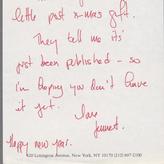 little post x-mas gift.
They tell me it's
just been published - so
i'm hoping you don't have
it yet.
Love
Happy new year.
420 Lexington Avenue, New York, NY 10170 (212) 697-1100